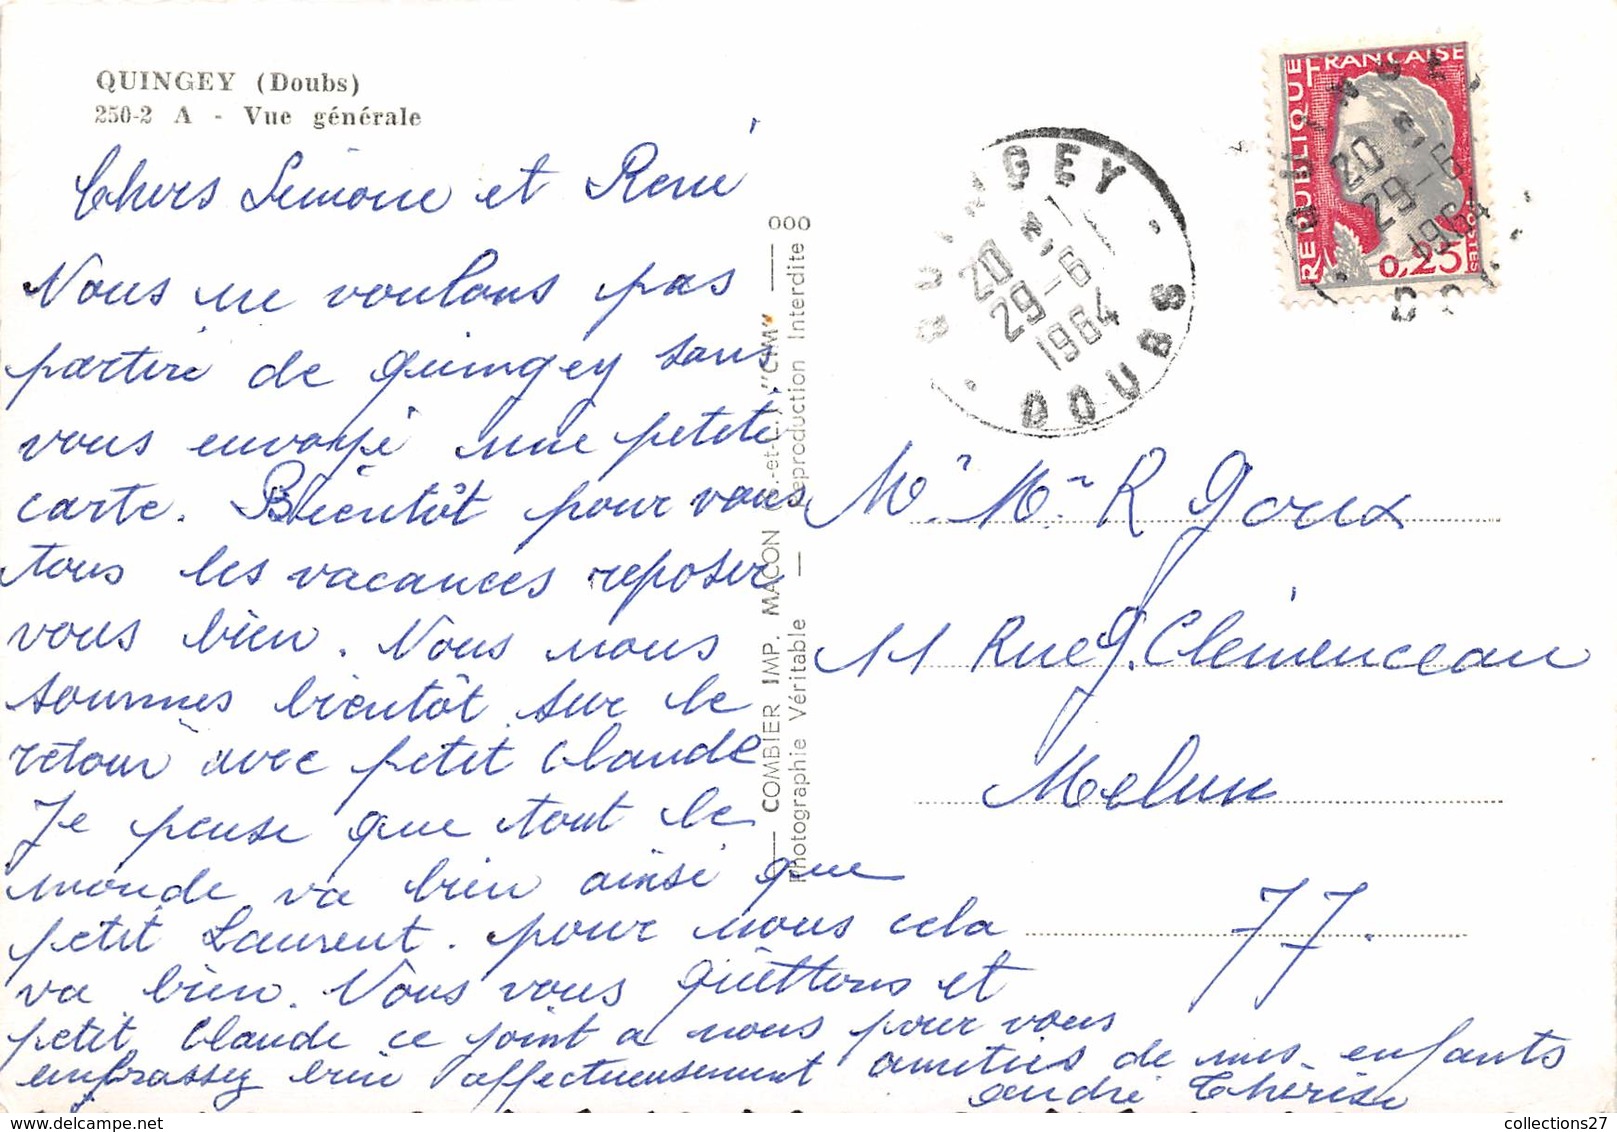 QUINGEY (Doubs)
250-2 A - Vue générale
Chers Simone et René
Nous ne voulons pas
partire de Quingey sans
vous envoyé une petite
carte. Bientôt pour vous
tous les vacances reposer
vous bien. Nous nous
sommes bientôt sur le
retour avec petit Claude
Je pense que tout le
monde va bien ainsi que
petit Laurent. pour nous cela
va bien. Nous vous quittons et
petit Claude ce joint a nous pour vous
embrassez bien affectueusement amities de mes enfants
André Thérèse
COMBIER IMP. MACON
"CIM"
Photographie Véritable — Reproduction Interdite
000
QUINGEY
20
29-6
1964
DOUBS
REPUBLIQUE FRANÇAISE
0,25
20
29-6
1964
Mr. Mr R Goux
11 Rue G. Clémenceau
Melun
77.
collections27